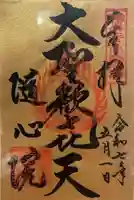 奉拝
令和七年
五月一日
大聖歓喜天
隨心院